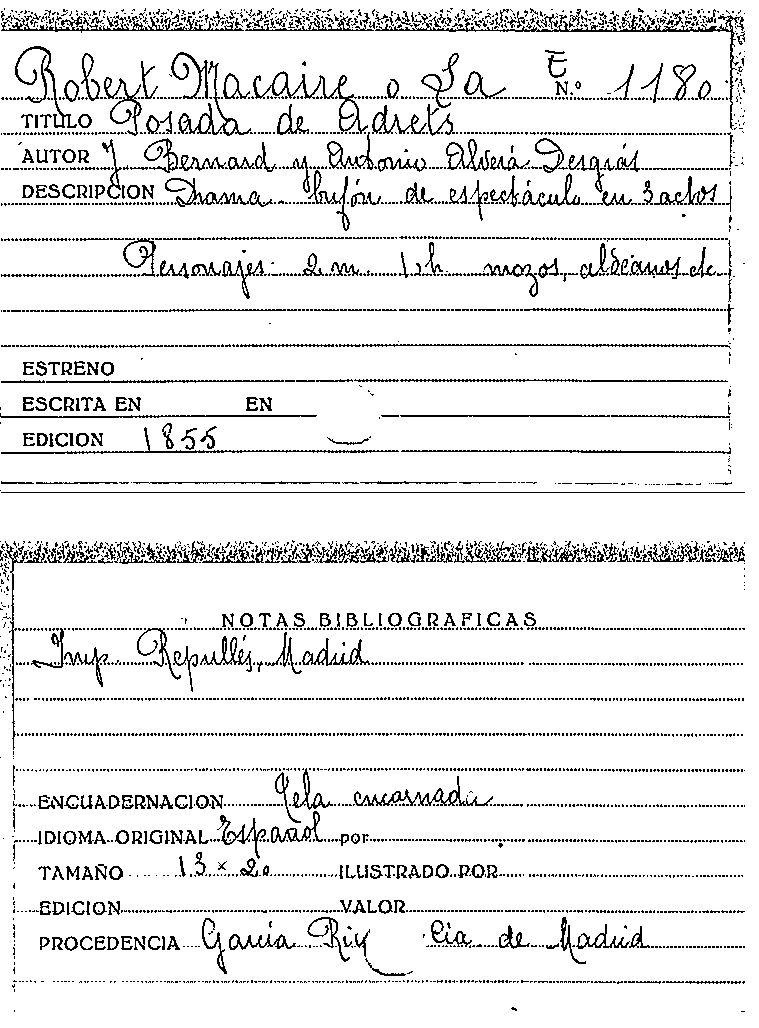 Robert Macaire o La E
N.º 1180
TITULO Posada de Adrets
AUTOR J. Bernard y Antonio Alverá Desgrás
DESCRIPCION Drama bufón de espectáculo en 3 actos
Personajes 2 m. 12 h mozos, aldeanos etc
ESTRENO
ESCRITA EN EN
EDICION 1855
NOTAS BIBLIOGRAFICAS
Imp. Repullés, Madrid
ENCUADERNACION Tela encarnada
IDIOMA ORIGINAL Español por
TAMAÑO 13 x 20 ILUSTRADO POR
EDICION VALOR
PROCEDENCIA García Rix Cia de Madrid